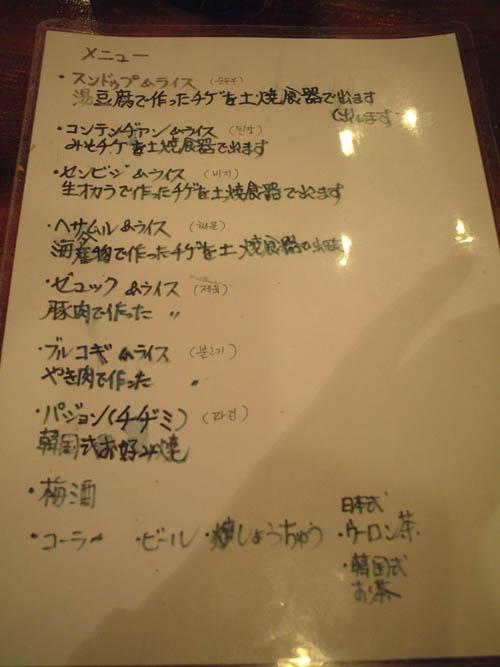 メニュー
・スンドゥプ&ライス (순두부)
湯豆腐で作ったチゲを土焼食器で出ます
(出します)
・コンテンヂャン&ライス (된장)
みそチゲを土焼食器で出ます
・センビジ &ライス (비지)
生オカラで作ったチゲを土焼食器で出ます
・ヘサムル &ライス (해물)
海産物で作ったチゲを土焼食器で出ます
・ゼユック &ライス (제육)
豚肉で作った 〃
・ブルコギ &ライス (불고기)
やき肉で作った 〃
・パジョン(チヂミ) (파전)
韓国式お好み焼
・梅酒
・コーラー ・ビール ・焼しょうちゅう
日本式
・ウーロン茶
・韓国式
お茶